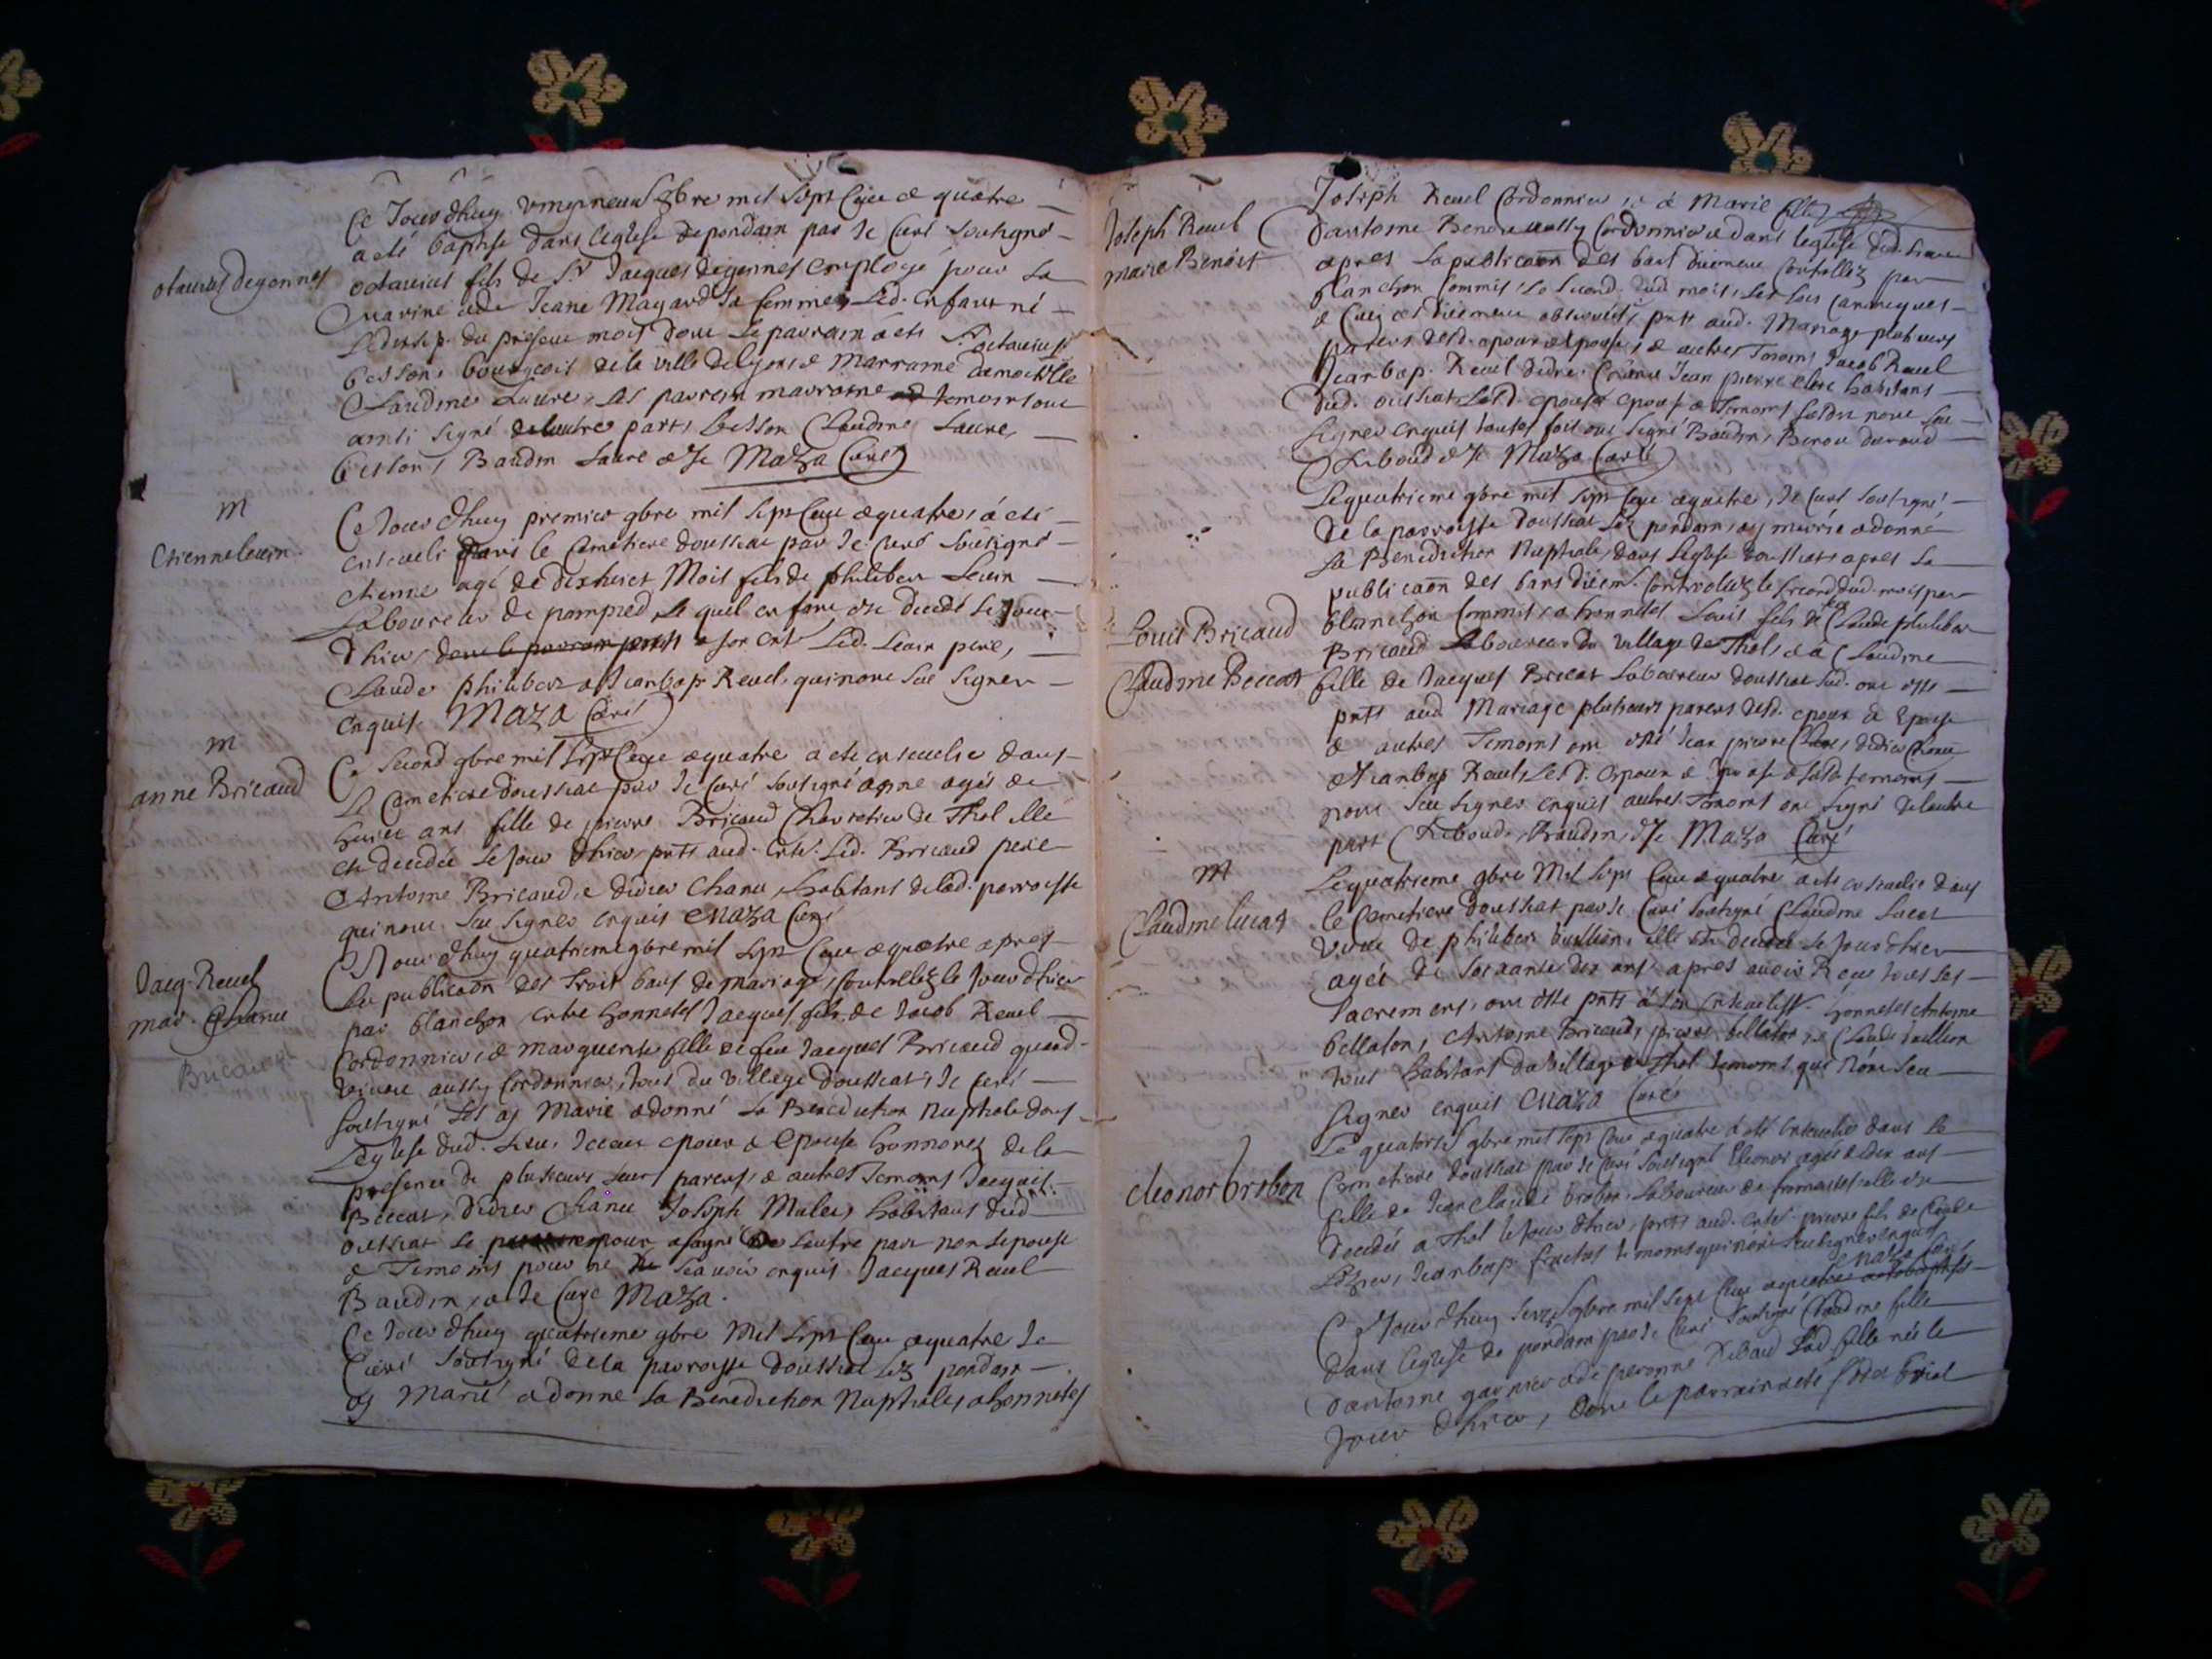 Ce Jourdhuy vingtneuf 8bre mil sept Cent & quatre
a eté baptisé dans leglise de pondain par Je Curé soubsigné
octavius degennes
octavius fils de Sr Jacques degennes employé pour la
marine & de Jeane Magard sa femme, Led. enfant né
Le dixsep. du present mois dont Le parrain a eté Sr octavius
besson, bourgeois de la ville de lyon & marraine damoiselle
Claudine Laure, les parrain marraine temoins ont
ainsi signé de lautre part, besson Claudine Laure,
besson, Baudin Laure & Je Maza Curé
m
Etienne levin
Ce Jourdhuy premier 9bre mil sept Cent & quatre, a eté
enseveli dans le Cemetiere doussiat par Je Curé soubsigné
etienne agé de dixhuict Mois fils de philibert Levin
Laboureur de pompied, Le quel enfant est decedé Le Jour
dhier, a son ent. Led. Levin pere,
Claude philibert & Jeanbap. Revel, qui nont sceu signer
enquis. Maza Curé
m
anne Bricaud
Ce second 9bre mil sept Cent & quatre a ete ensevelie dans
Le Cemetiere doussiat par Je Curé soubsigné anne agée de
huict ans fille de pierre Bricaud Charretier de Thol elle
est decedée Le Jour dhier, pnts aud. ents. Led. Bricaud pere
Antoine Bricaud, & didier Chanu, habitans de lad. parroisse
qui nont sceu signer enquis Maza Curé
Jacq. Revel
mar. Chanu
Bricaud
Ce Jourdhuy quatrieme 9bre mil sept Cent & quatre apres
La publicaõn des Trois bans de mariage, Controllez le Jour dhier
par blanchon entre honnetes Jacques fils de Jacob Revel
Cordonnier, & marguerite fille de feu Jacques Bricaud quand
vivant aussy Cordonnier, tous du village doussiat, Je Curé
soubsigné Les ay Marié & donné La Benediction Nuptiale dans
Leglise dud. Lieu, Iceux epoux & epouse honnorez de la
presence de plusieurs leurs parens, & autres Temoins Jacques
Beccat, didier Chanu Joseph Mulet, habitans dud.
oussiat Le epoux a signé De Lautre part non Lepouse
& Temoins pour ne scavoir enquis Jacques Revel
Baudin, & Je Curé Maza.
Ce Jourdhuy quatrieme 9bre Mil sept Cent & quatre Je
Curé soubsigné de la parroisse doussiat Lez pondain
ay Marié & donné La Benediction Nuptiale, a honnetes
Joseph Revel
marie Benoist
Joseph Revel Cordonnier, & a Marie fille
dantoine Benoist aussy Cordonnier & dans leglise dud. Lieu
apres La publicaõn des bans duement Controllez par
blanchon Commis, Le second dud. mois, Les loix Canoniques
& Civiles duement observées, pnts aud. Mariage plusieurs
parens desd. epoux & epouse, & autres Temoins Jacob Revel
Jeanbap. Revel didier Chanu Jean pierre Clerc habitans
dud. oussiat Lesd. epoux & epouse & Temoins susd. nont sceu
signer enquis toutes fois ont signé Baudin, Benoit durand
Riboud & Je Maza Curé
Lequatrieme 9bre mil sept Cent & quatre, Je Curé soubsigné
De la parroisse doussiat Lez pondain, ay marié & donné
La Benediction Nuptiale, dans Leglise doussiat apres La
publicaõn des bans duem. Controllez le second dud. mois par
Louis Bricaud
Claudine Beccat
blanchon Commis, a honnetes Louis fils de feu Claude philibert
Bricaud Laboureur du village de Thol, & a Claudine
fille de Jacques Beccat Laboureur doussiat sud. ont esté
pnts aud. Mariage plusieurs parens desd. epoux & Epouse
& autres Temoins ont esté Jean pierre Clerc, didier Chanu
& Jeanbap. Revel, Lesd. epoux & Epouse & susd. temoins
nont sceu signer enquis autres Temoins ont signé de lautre
part Riboud, Baudin, & Je Maza Curé
m
Claudine lucat
Lequatrieme 9bre Mil sept Cent & quatre a eté ensevelie dans
le Cemetiere doussiat par Je Curé soubsigné Claudine Lucat
veuve de philibert vullion, elle est decedée le Jour dhier
agée de soixante dix ans apres avoir Reçu tous ses
sacremens, ont esté pnts a son ensevelisst. honnetes Antoine
bellaton, Antoine Bricaud, pierre bellaton, & Claude vullion
tous habitans du village de Thol temoins qui nont sceu
signer enquis Maza Curé
eleonor brobon
Le quatorse 9bre mil sept Cent & quatre a eté ensevelie dans le
Cemetiere doussiat par Je Curé soubsigné Eleonor agée de dix ans
fille de Jean Claude brobon Laboureur de elle est
decedée a Thol le Jour dhier, pnts aud. ents. pierre fils de Claude
Jeanbap. temoins qui nont sceu signer enquis
Maza Curé
Ce Jourdhuy seize 9bre mil sept Cent & quatre a eté baptisée
dans leglise de pondain par Je Curé soubsigné Claudine fille
dantoine garnier & de peronne Ribaud Lad. fille née le
Jour dhier, dont le parrain a eté